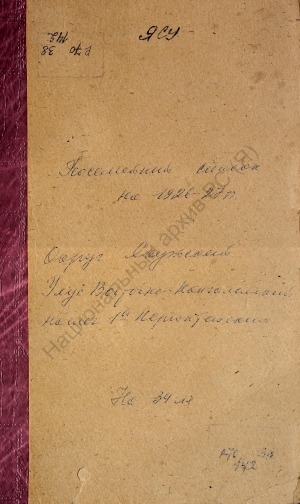 Р 70
38
142
ЯСУ
Посемейный список
на 1926-27 г.
Округ Якутский
Улус Восточно-Кангаласский
наслег 1й Нерюктяйский
На 34 л
Национальный архив РС(Я)
142